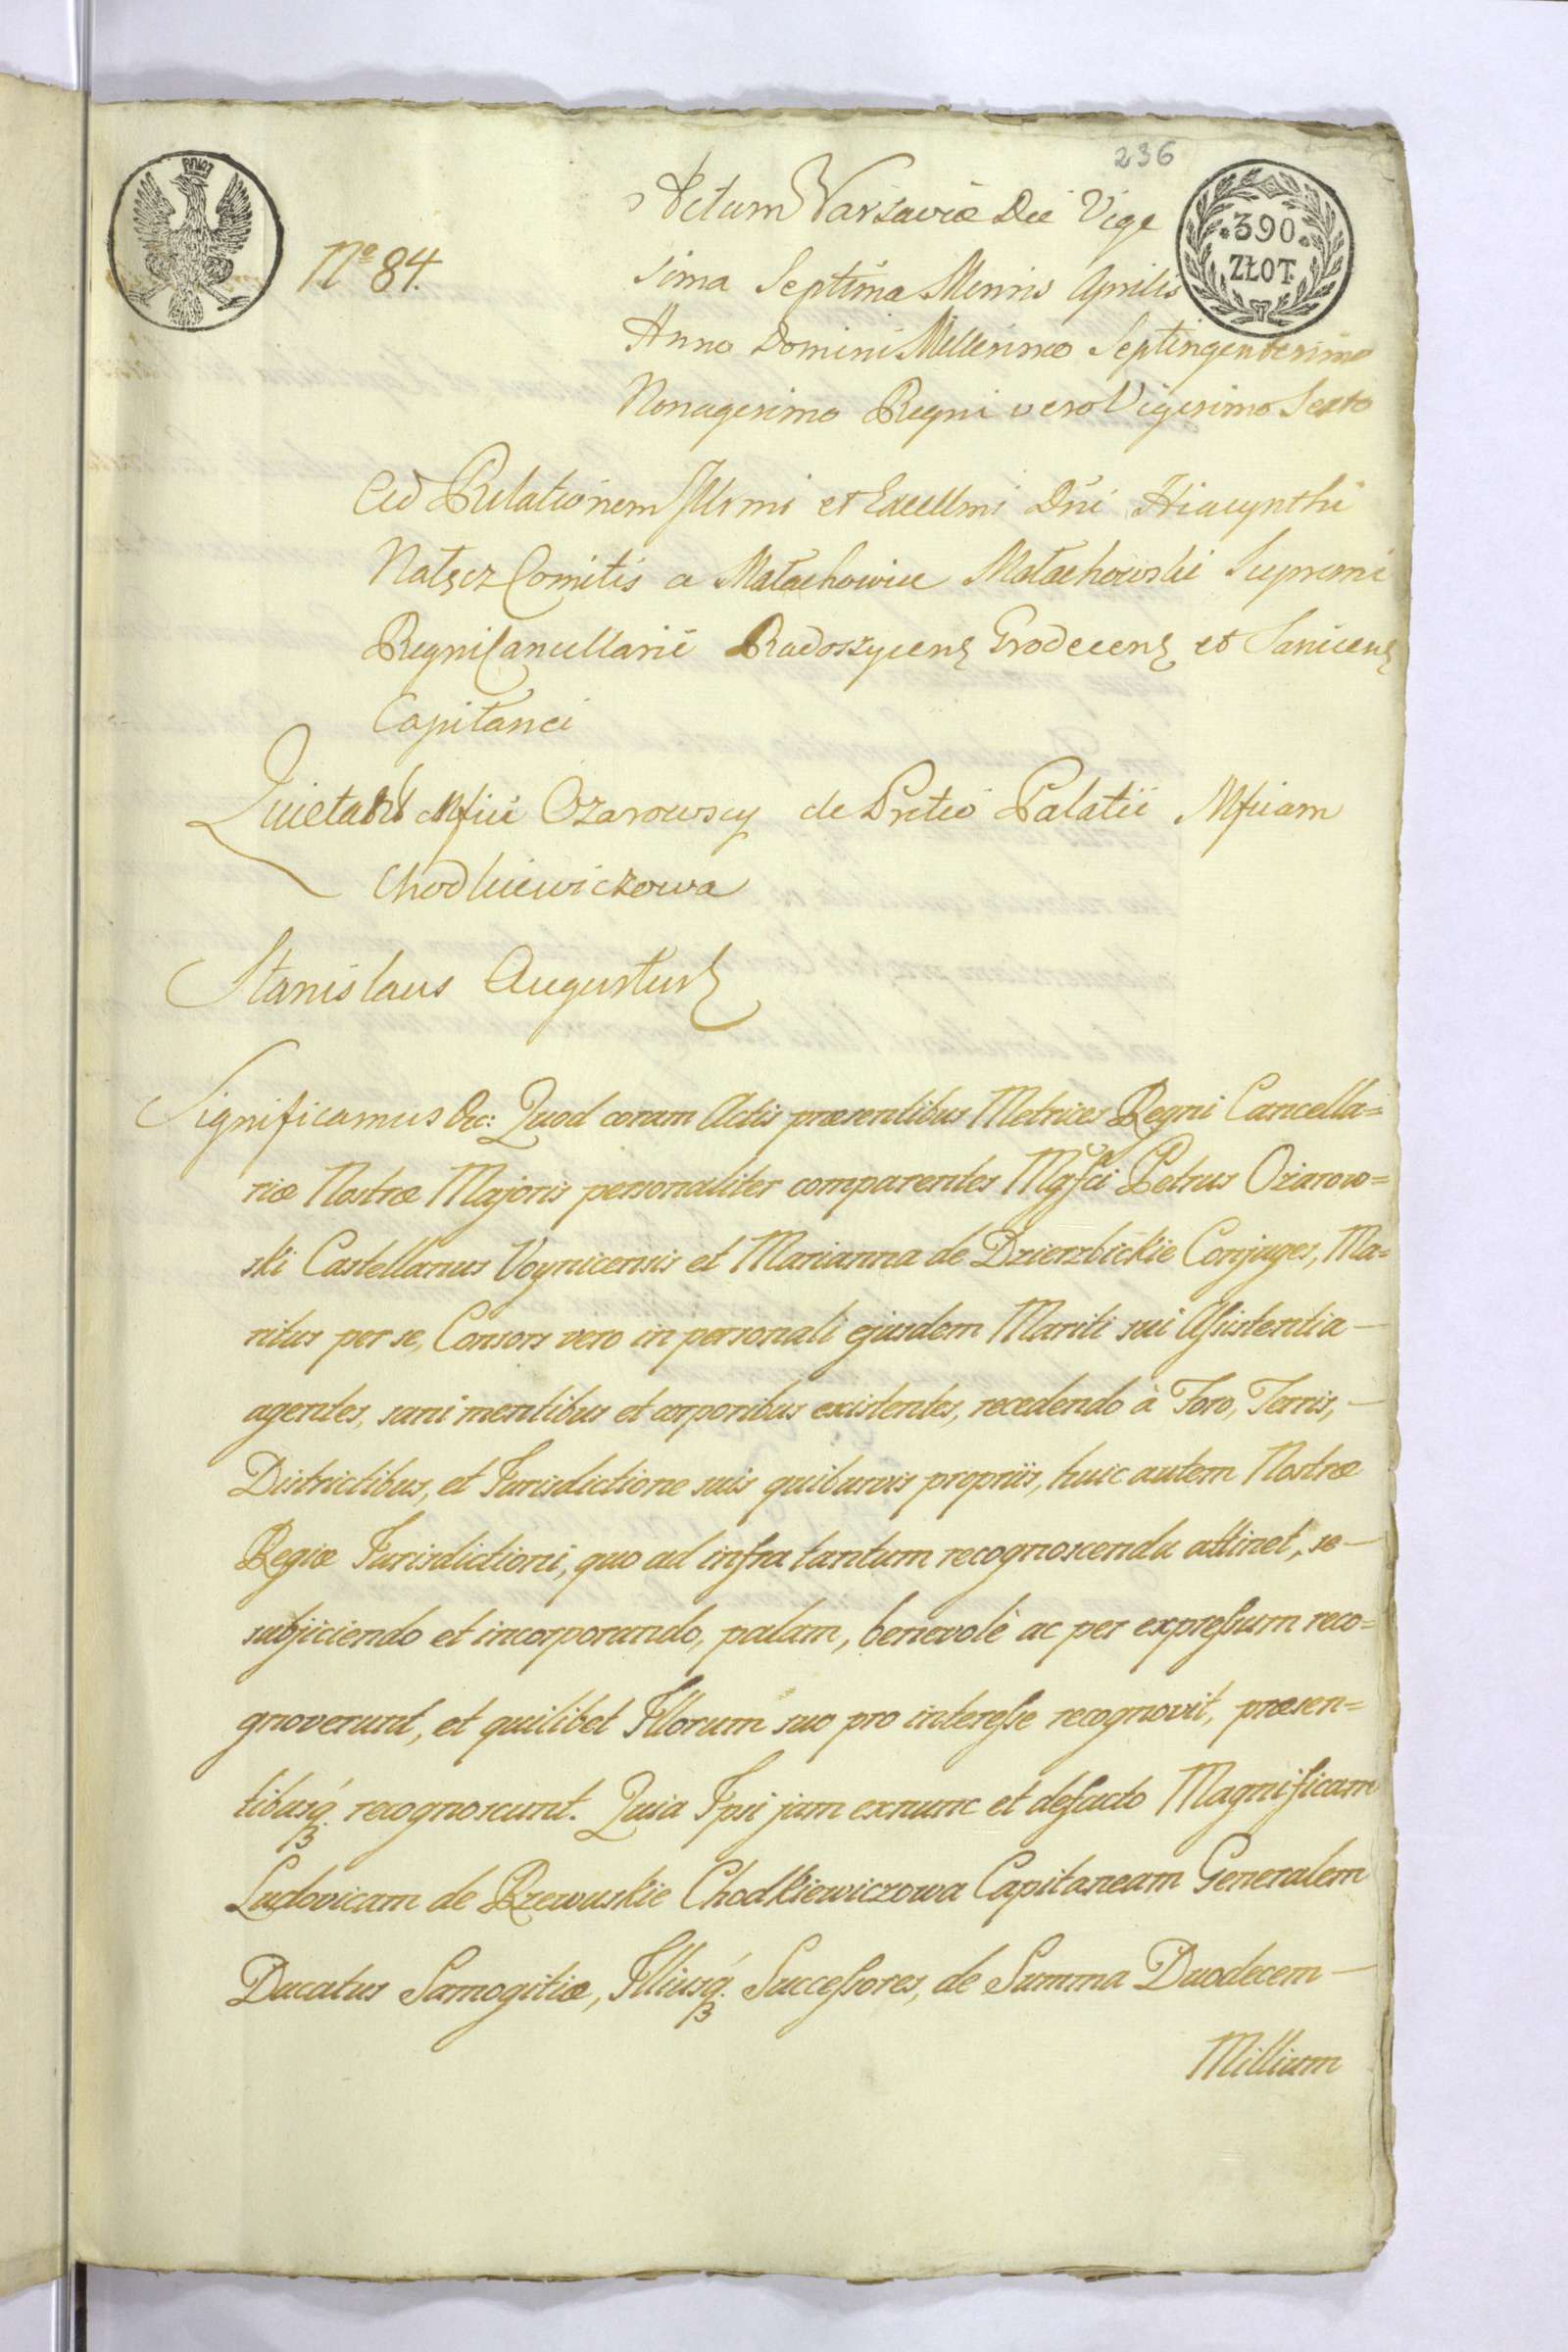 236
Actum Varsaviæ Die Vige
390
ZŁOT.
Nº 84.
sima Septima Mensis Aprilis
Anno Domini Millesimo Septingentesimo
Nonagesimo Regni vero Vigesimo Sexto
Ad Relationem Illrmi et Excellmi Dni Hiacynthi
Nałęcz Comitis a Małachowice Małachowski Supremi
Regni Cancellarii Radoszycens Grodecens et Sanicens
Capitanei
Quietatt Mfici Ozarowscy de Pretio Palatii Mficam
Chodkiewiczowa
Stanislaus Augustus
Significamus &c: Quod coram Actis præsentibus Metrices Regni Cancella=
riæ Nostræ Majoris personaliter comparentes Mgfci Petrus Ożarow=
ski Castellanus Voynicensis et Marianna de Dzierzbickie Conjuges, Ma=
ritus per se, Consors vero in personali ejusdem Mariti sui Assistentia —
agentes, sani mentibus et corporibus existentes, recedendo à Foro, Terris, —
Districtibus, et Jurisdictione suis quibusvis propriis, huic autem Nostræ
Regiæ Jurisdictioni, quo ad infra tantum recognoscenda attinet, se —
subjiciendo et incorporando, palam, benevolè ac per expressum reco=
gnoverunt, et quilibet Illorum suo pro interesse recognovit, præsen=
tibusq. recognoscunt. Quia Ipsi jam exnunc et defacto Magnificam
Ludovicam de Rzewuskie Chodkiewiczowa Capitaneam Generalem
Ducatus Samogitiæ, Illiusq. Successores, de Summa Duodecem —
Millium